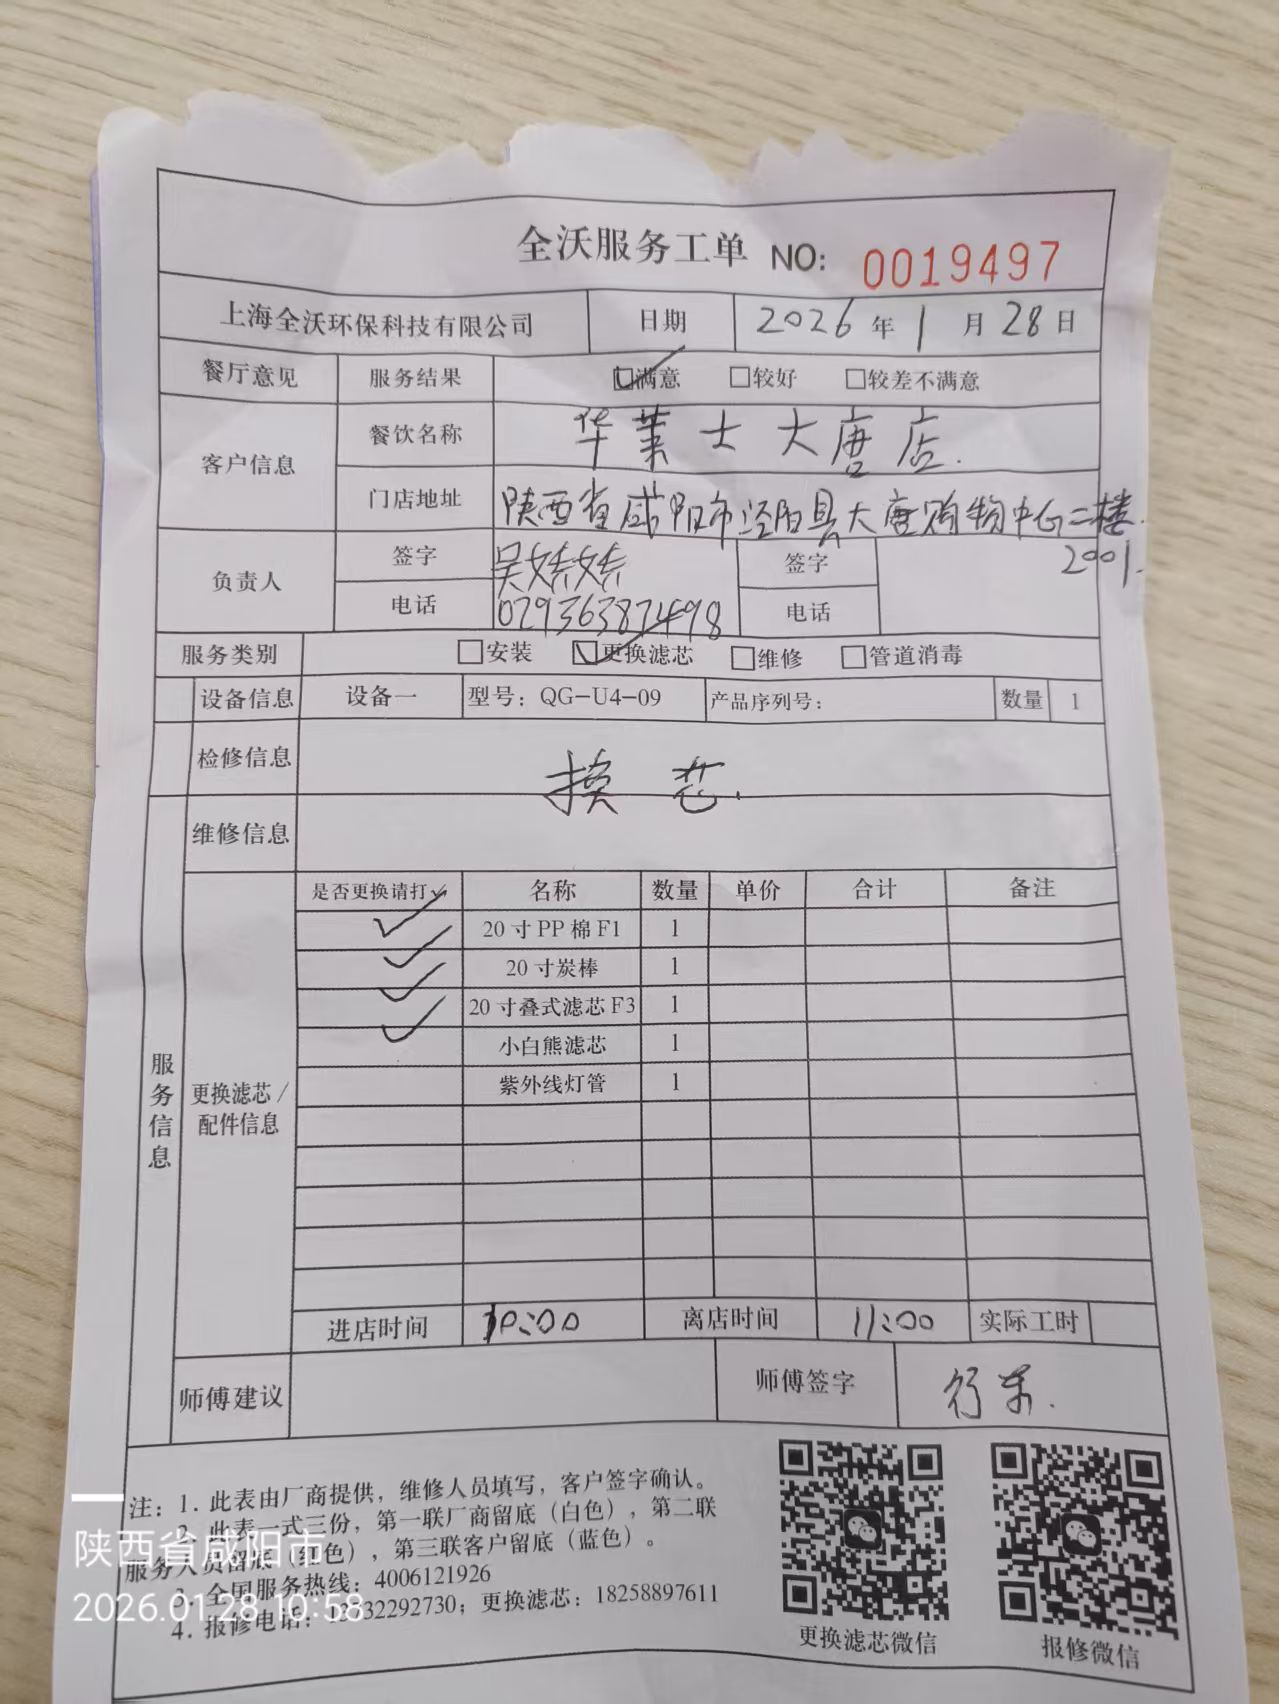 全沃服务工单 NO: 0019497
上海全沃环保科技有限公司 日期 2026年1月28日
餐厅意见 服务结果 ☑满意 □较好 □较差不满意
客户信息 餐饮名称 华莱士大唐店.
门店地址 陕西省咸阳市泾阳县大唐购物中心二楼.
2001.
负责人 签字 吴 签字
电话 电话
服务类别 □安装 ☑更换滤芯 □维修 □管道消毒
设备信息 设备一 型号：QG-U4-09 产品序列号： 数量 1
检修信息 换芯.
维修信息
服务信息
更换滤芯/
配件信息
是否更换请打✓ 名称 数量 单价 合计 备注
✓ 20寸PP棉F1 1
✓ 20寸炭棒 1
✓ 20寸叠式滤芯F3 1
✓ 小白熊滤芯 1
紫外线灯管 1
进店时间 10:00 离店时间 11:00 实际工时
师傅建议 师傅签字
注：1. 此表由厂商提供，维修人员填写，客户签字确认。
2. 此表一式三份，第一联厂商留底（白色），第二联
服务人员留底（红色），第三联客户留底（蓝色）。
3. 全国服务热线：4006121926
4. 报修电话： 32292730；更换滤芯：18258897611
更换滤芯微信 报修微信
陕西省咸阳市
2026.01.28 10:58